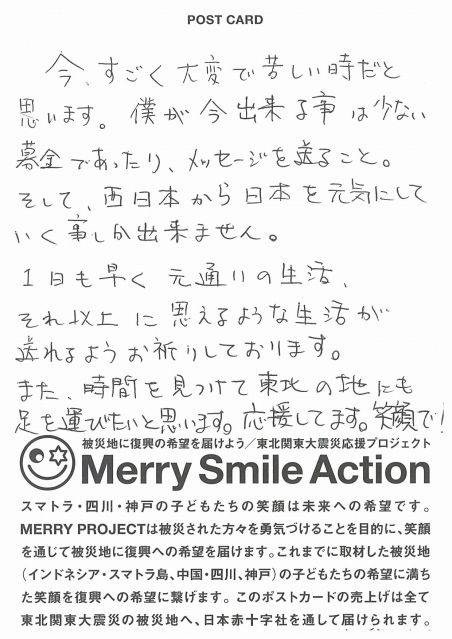 POST CARD
今、すごく大変で苦しい時だと
思います。僕が今出来る事は少ない
募金であったり、メッセージを送ること。
そして、西日本から日本を元気にして
いく事しか出来ません。
1日も早く元通りの生活、
それ以上に思えるような生活が
送れるようお祈りしております。
また、時間を見つけて東北の地にも
足を運びたいと思います。応援してます。笑顔で!
被災地に復興の希望を届けよう/東北関東大震災応援プロジェクト
Merry Smile Action
スマトラ・四川・神戸の子どもたちの笑顔は未来への希望です。
MERRY PROJECTは被災された方々を勇気づけることを目的に、笑顔
を通じて被災地に復興への希望を届けます。これまでに取材した被災地
(インドネシア・スマトラ島、中国・四川、神戸)の子どもたちの希望に満ち
た笑顔を復興への希望に繋げます。このポストカードの売上げは全て
東北関東大震災の被災地へ、日本赤十字社を通して届けられます。